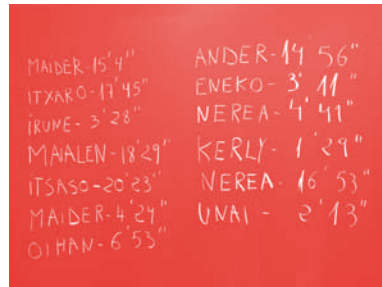 MAIDER-15'4"
ITXARO-17'45"
IRUNE-3'28"
MAIALEN-18'29"
ITSASO-20'23"
MAIDER-4'24"
OIHAN-6'53"
ANDER-14 56"
ENEKO-3' 11"
NEREA-4'41"
KERLY-1'29"
NEREA-16'53"
UNAI - 2'13"